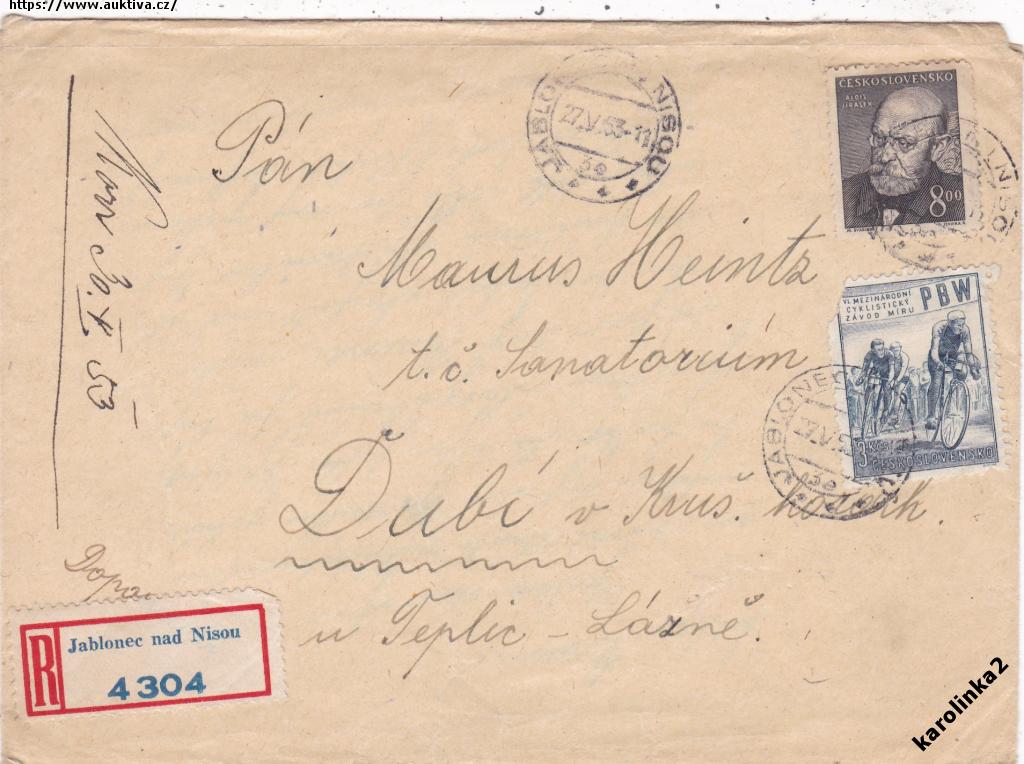 https://www.auktiva.cz/
JABLONEC NAD NISOU
27.V.53-11
3e
ČESKOSLOVENSKO
ALOIS
JIRÁSEK
8 00
NISOU
Pán
Maurus Heintz
t. č. Sanatorium
Dubí v Kruš. horách.
u Teplic - Lázně.
VI. MEZINÁRODNÍ
CYKLISTICKÝ
ZÁVOD MÍRU
PBW
3 Kčs
ČESKOSLOVENSKO
JABLONEC
27.V.5
3e
30. V. 53
Dopor.
R
Jablonec nad Nisou
4304
karolinka2